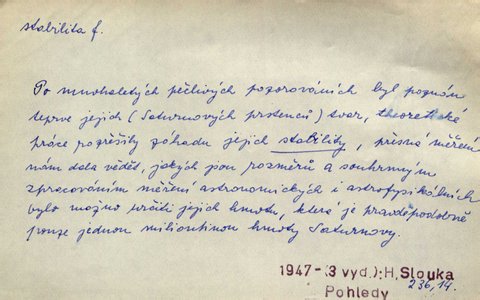 stabilita f.
Po mnohaletých pečlivých pozorováních byl poznán
teprve jejich (Saturnových prstenců) tvar, theoretické
práce rozřešily záhadu jejich stability, přesná měření
nám dala vědět, jakých jsou rozměrů a souhrnným
zpracováním měření astronomických i astrofysikálních
bylo možno určiti jejich hmotu, která je pravděpodobně
pouze jednou milioninou hmoty Saturnovy.
1947-(3 vyd.):H,Slouka
Pohledy 236,14.